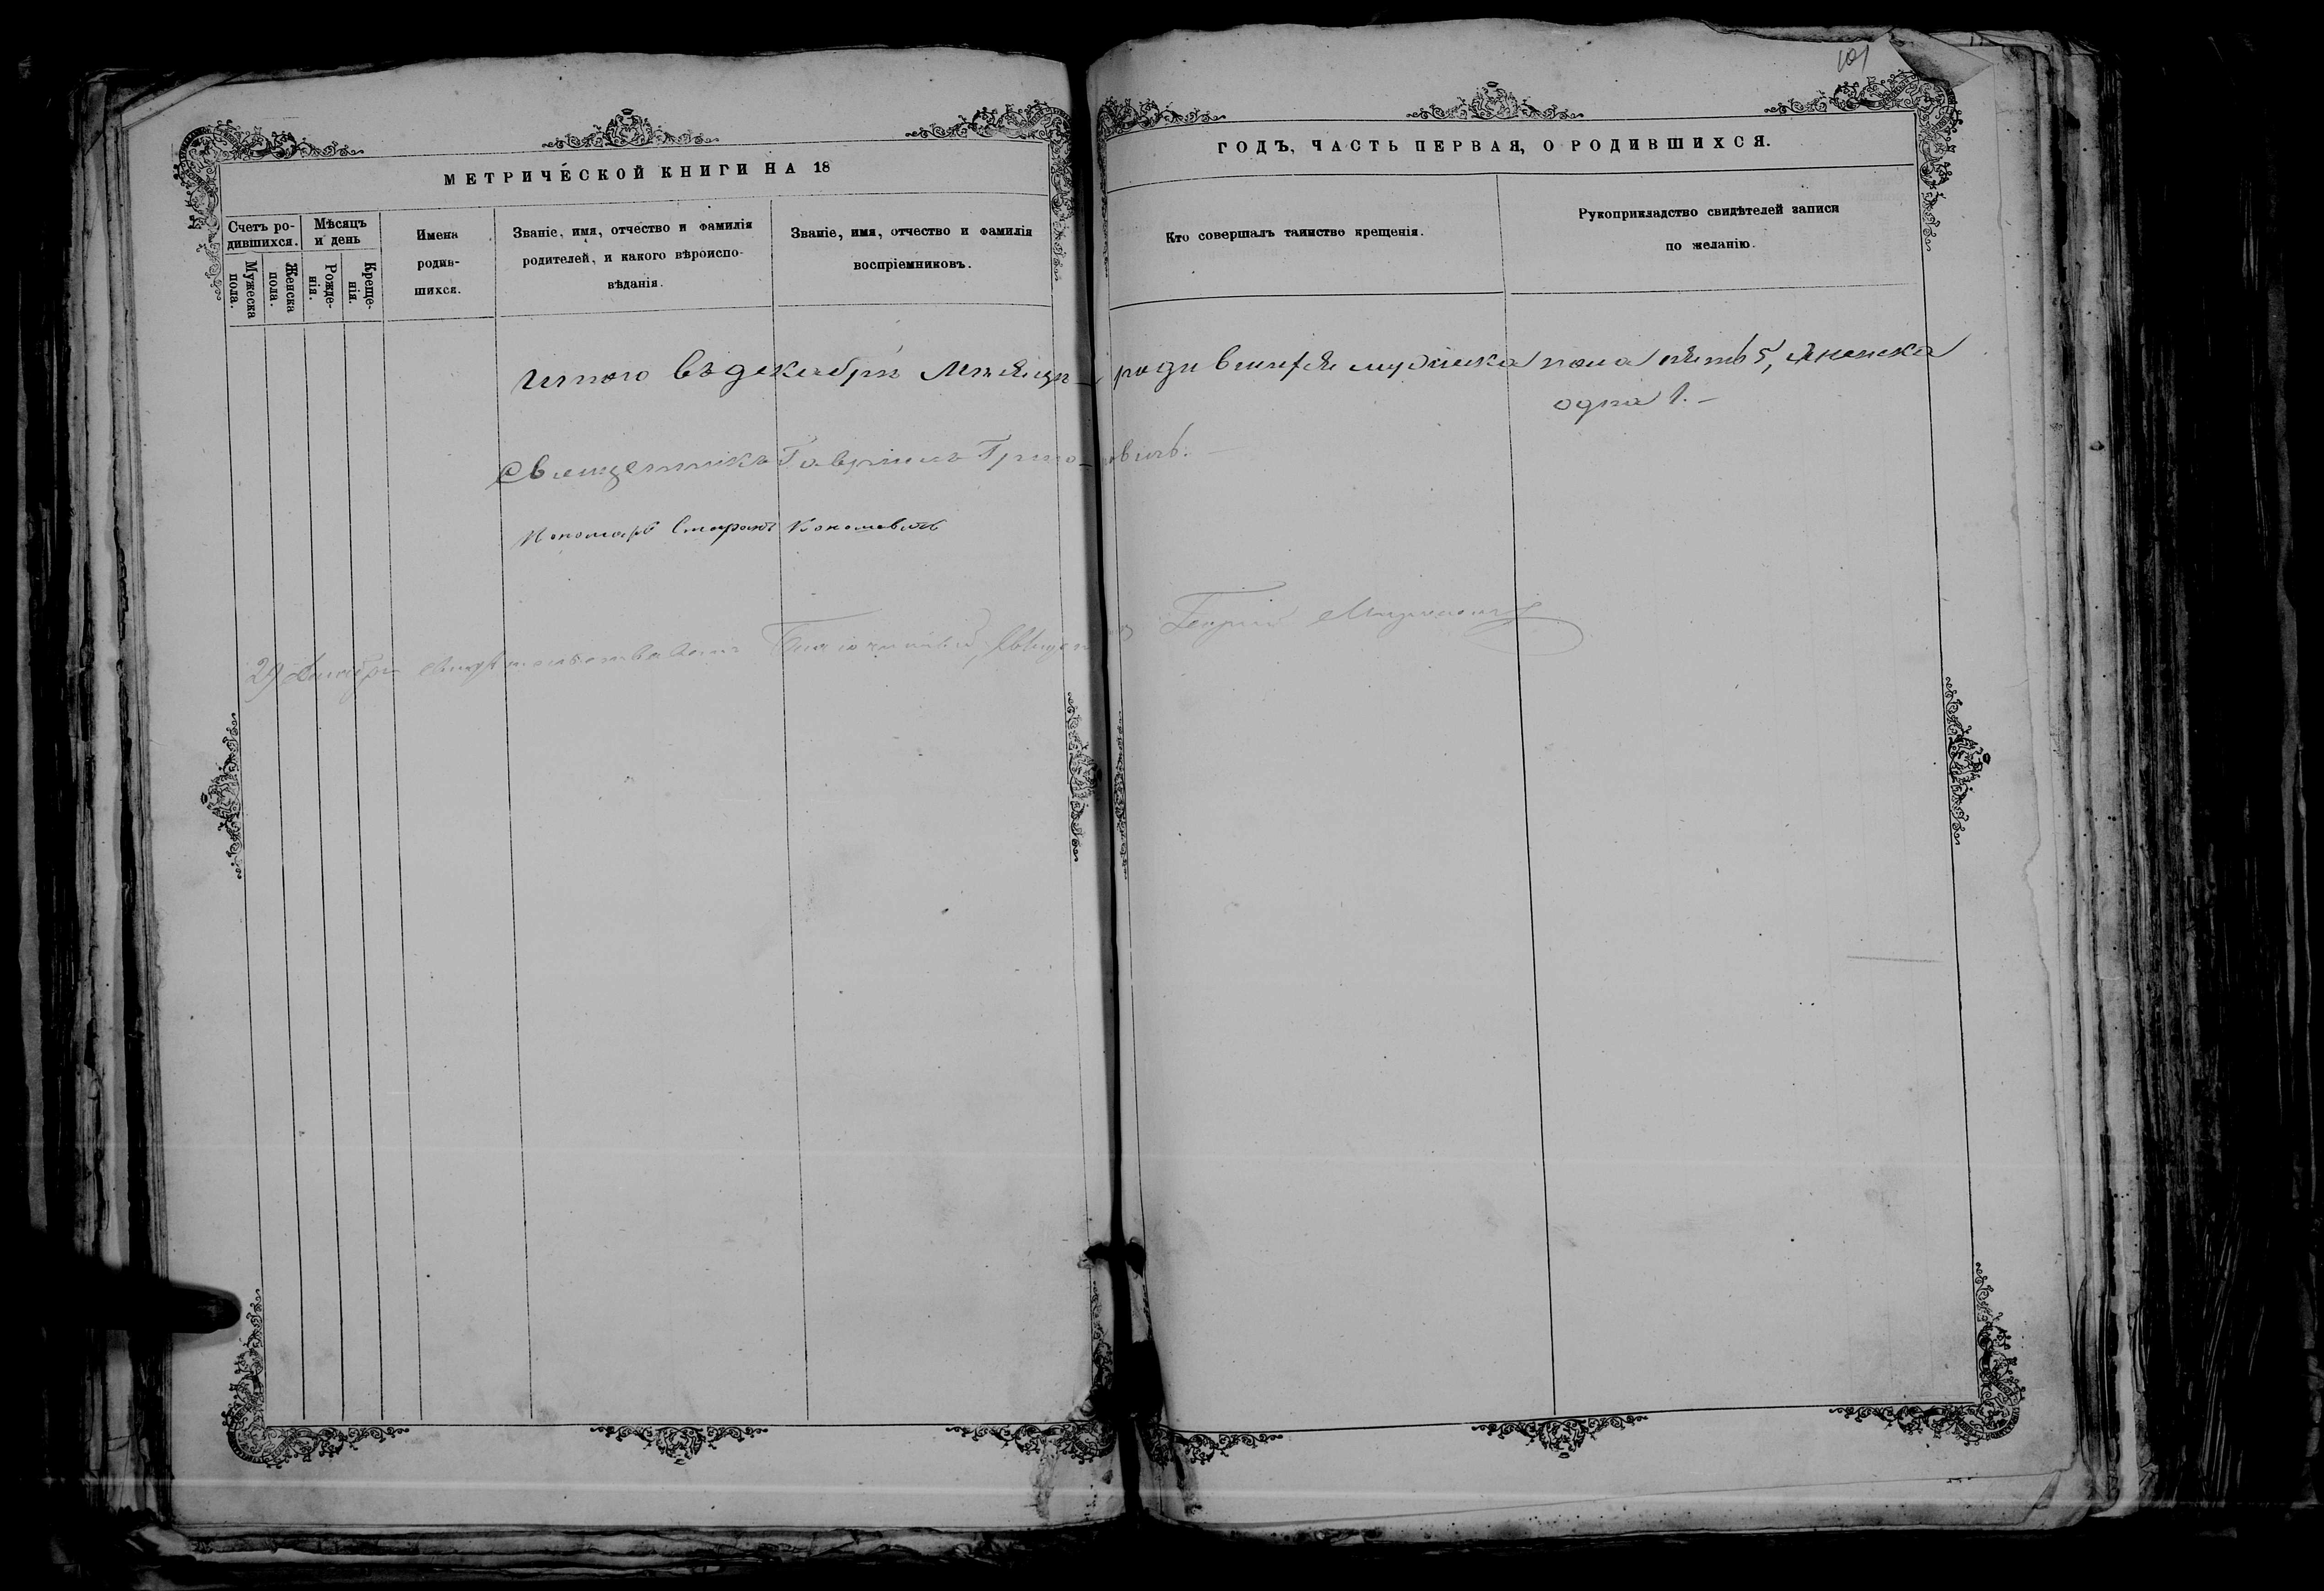 101
МЕТРИЧЕ́СКОЙ КНИГИ НА 18
ГОДЪ, ЧАСТЬ ПЕРВАЯ, О РОДИВШИХСЯ.
Счетъ ро-
дившихся.
Мужеска
пола.
Женска
пола.
Мѣсяцъ
и день
Рожде-
нія.
Креще-
нія.
Имена
родив-
шихся.
Званіе, имя, отчество и фамилія
родителей, и какого вѣроиспо-
вѣданія.
Званіе, имя, отчество и фамилія
воспріемниковъ.
Кто совершалъ таинство крещенія.
Рукоприкладство свидѣтелей записи
по желанію.
Итого въ декабрѣ мѣсяцѣ родившихся мужеска пола пять 5, женска
одна 1. —
Священникъ Гавріилъ
Пономарь Кононовичъ
29 свидѣтельствовалъ Благочинный, Георгій